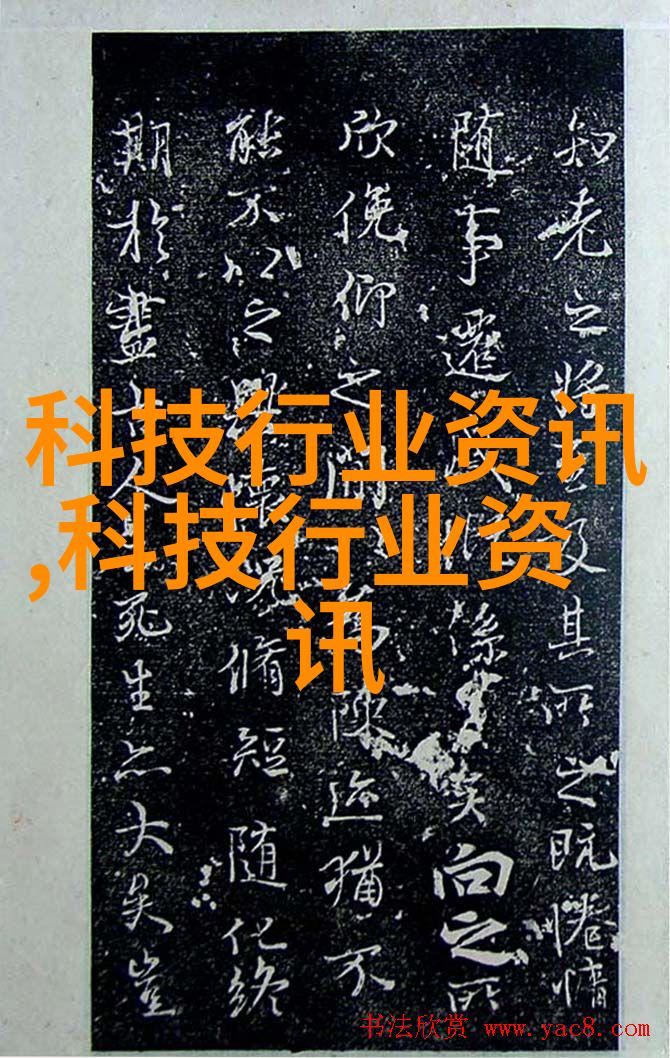 知老之將至及其所之既惓情
随事遷感慨係之矣向之所
欣俛仰之間為陳迹猶不
能不以之興懷況脩短随化終
期於盡古人死生亦大矣豈
科技行业资讯
,科技行业资
讯
书法欣赏 www.yac8.com